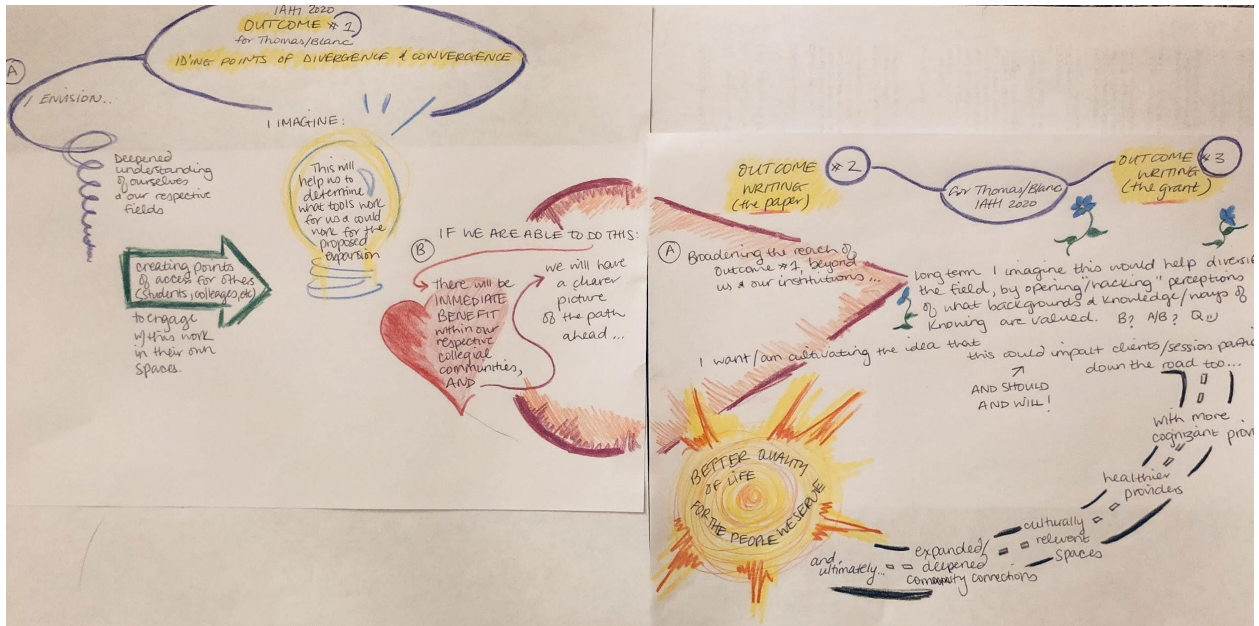 IAHI 2020
OUTCOME #1
for Thomas/Blanc
ID'ING POINTS OF DIVERGENCE & CONVERGENCE
A
I ENVISION..
Deepened
understanding
of ourselves
& our respective
fields
creating points
of access for others
(students, colleages, etc)
to engage
w/this work
in their own
spaces.
I IMAGINE:
This will
help us to
determine
what tools work
for us & could
work for the
proposed
expansion
B
IF WE ARE ABLE TO DO THIS:
there will be
IMMEDIATE
BENEFIT
within our
respective
collegial
communities,
AND
we will have
a clearer
picture
of the path
ahead ...
OUTCOME #2
WRITING
(the paper)
for Thomas/Blanc
IAHI 2020
OUTCOME #3
WRITING
(the grant)
A
Broadening the reach of
Outcome #1, beyond
us & our institutions ...
long term I imagine this would help diversi
the field, by opening/"hacking" perceptions
of what backgrounds & knowledge/ways of
knowing are valued. B? A/B? Q
I want/am cultivating the idea that
this could impact clients/session partne
down the road too...
AND SHOULD
AND WILL!
with more
cognizant provi
healthier
providers
culturally
relevant
spaces
expanded/
deepened
community connections
and
ultimately...
BETTER QUALITY
OF LIFE
FOR THE PEOPLE WE SERVE